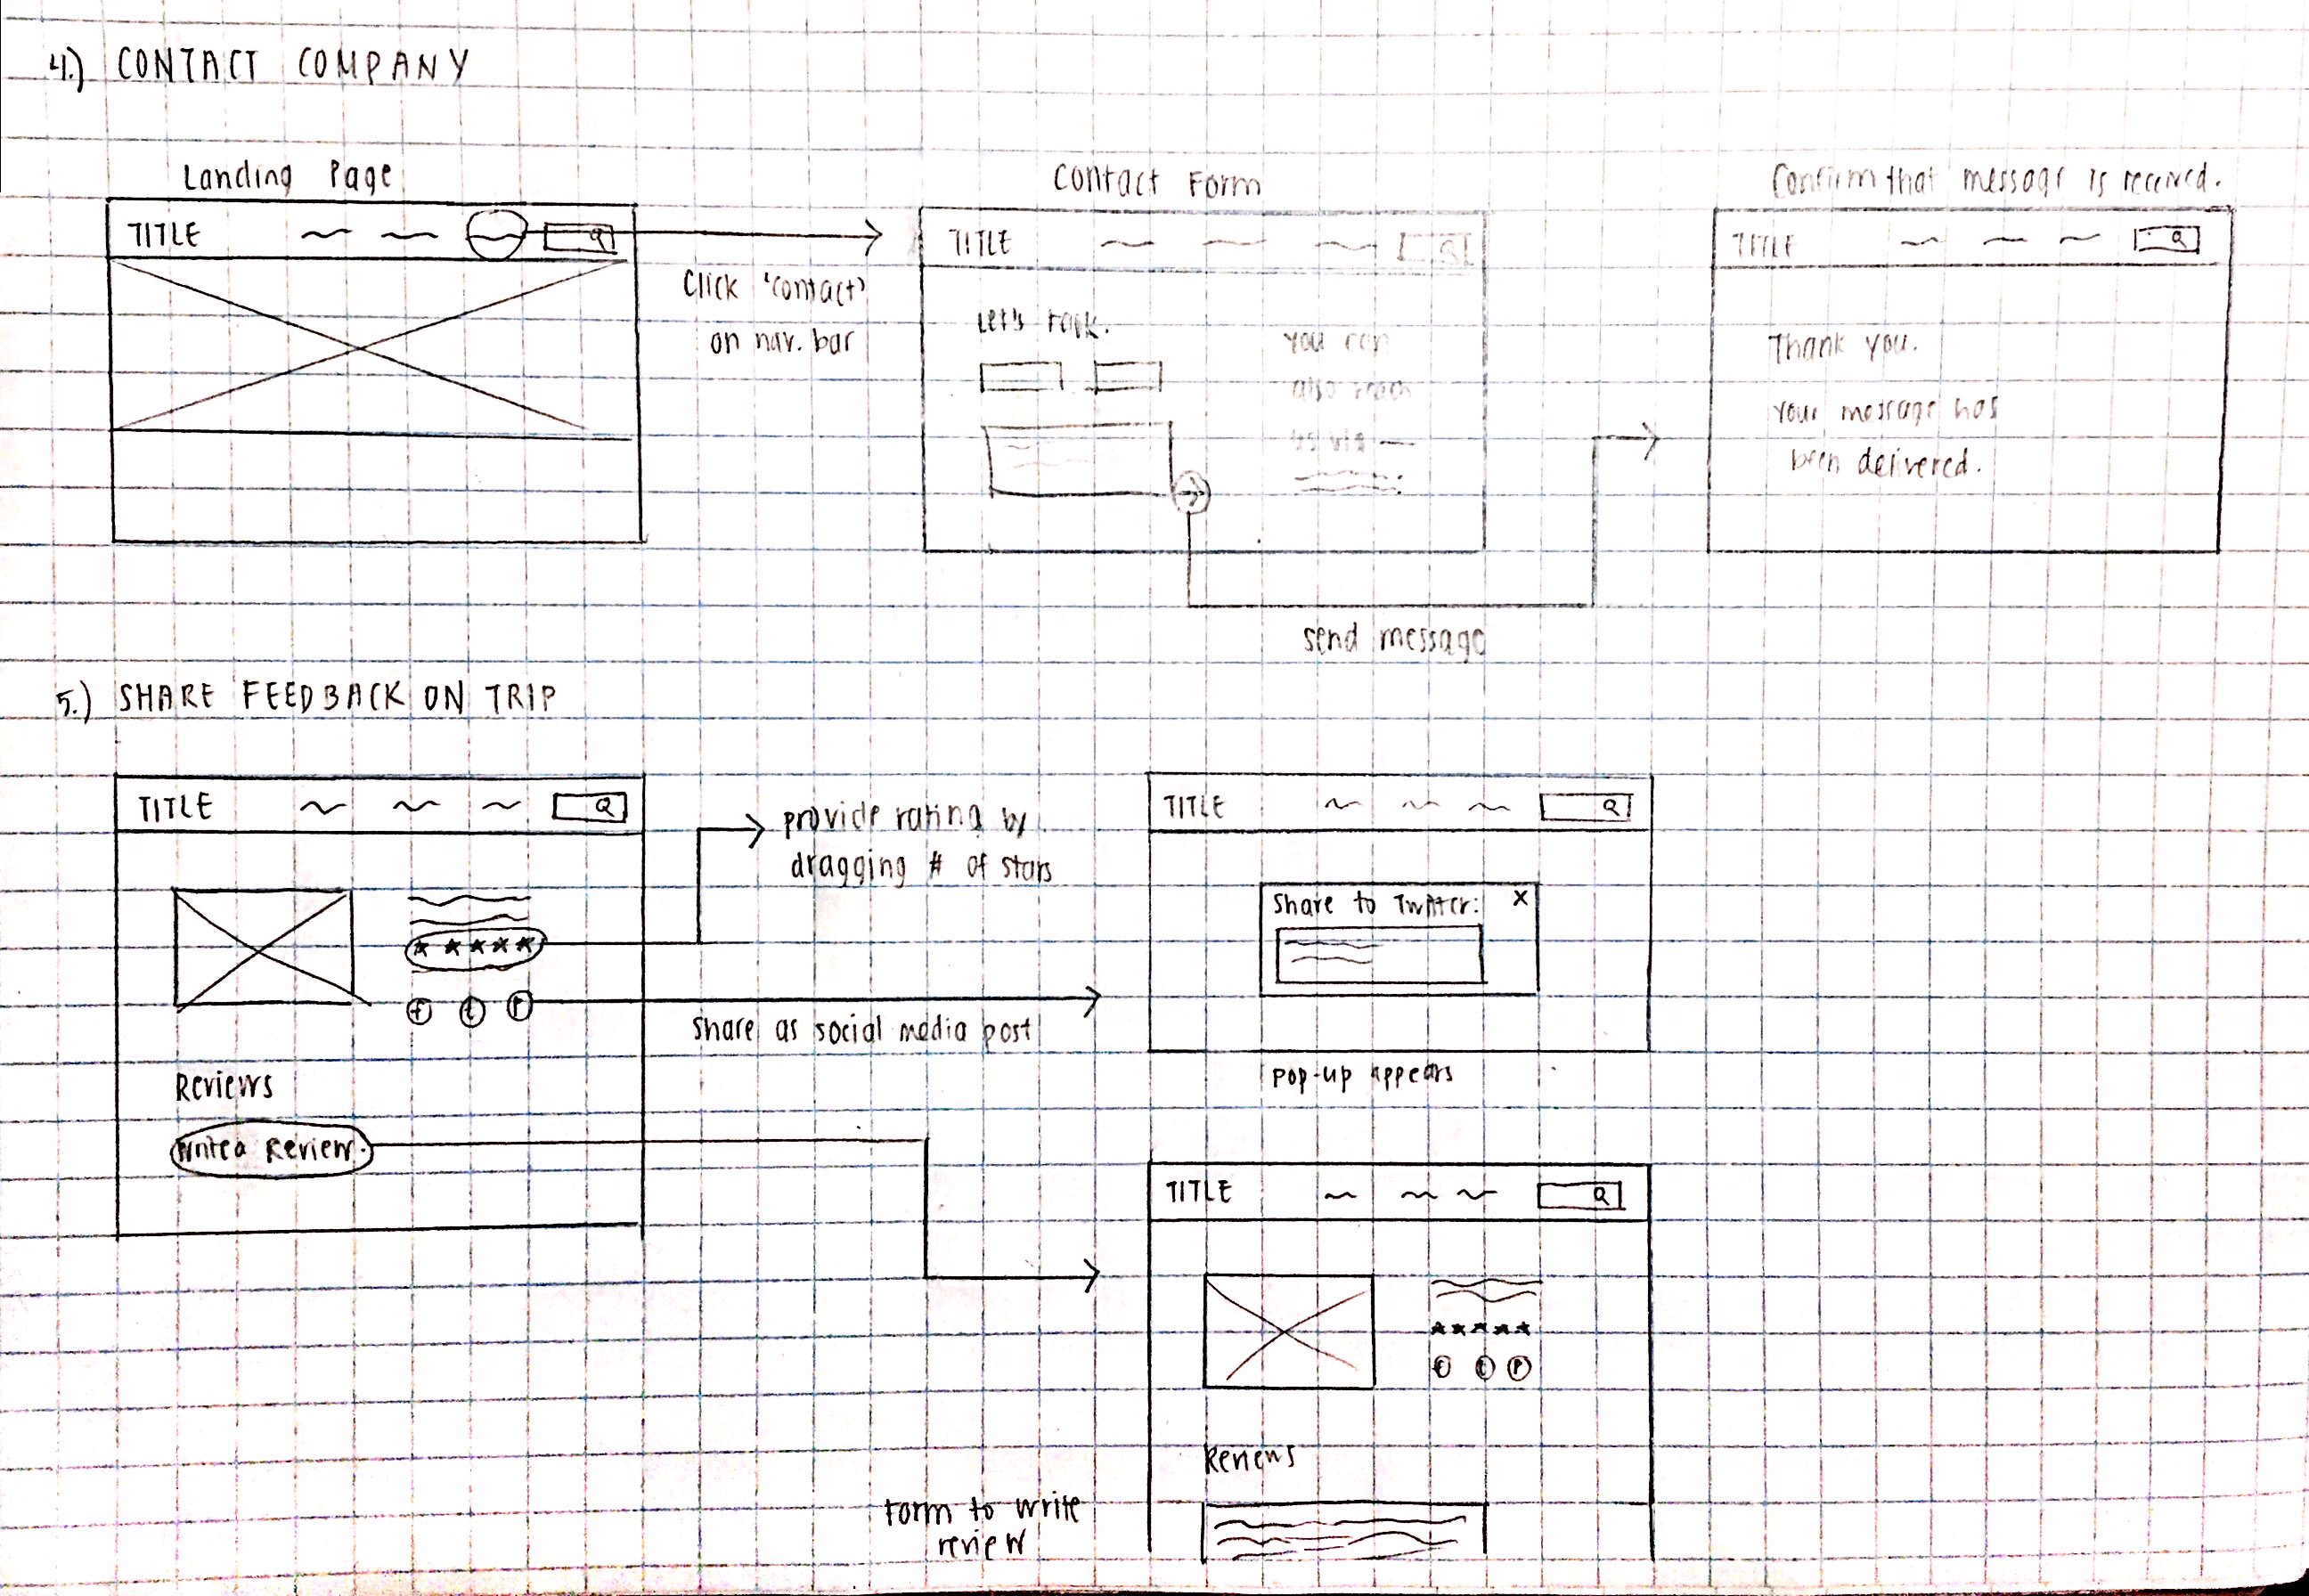 4.) CONTACT COMPANY
Landing Page
TITLE
Click 'contact'
on nav. bar
Contact Form
TITLE
Let's talk.
You can
also reach
us via
send message
Confirm that message is received.
TITLE
Thank you.
Your message has
been delivered.
5.) SHARE FEEDBACK ON TRIP
TITLE
f t P
Reviews
Write a Review.
provide rating by
dragging # of stars
share as social media post
TITLE
Share to Twitter: X
Pop-up appears
TITLE
f t P
Reviews
form to write
review